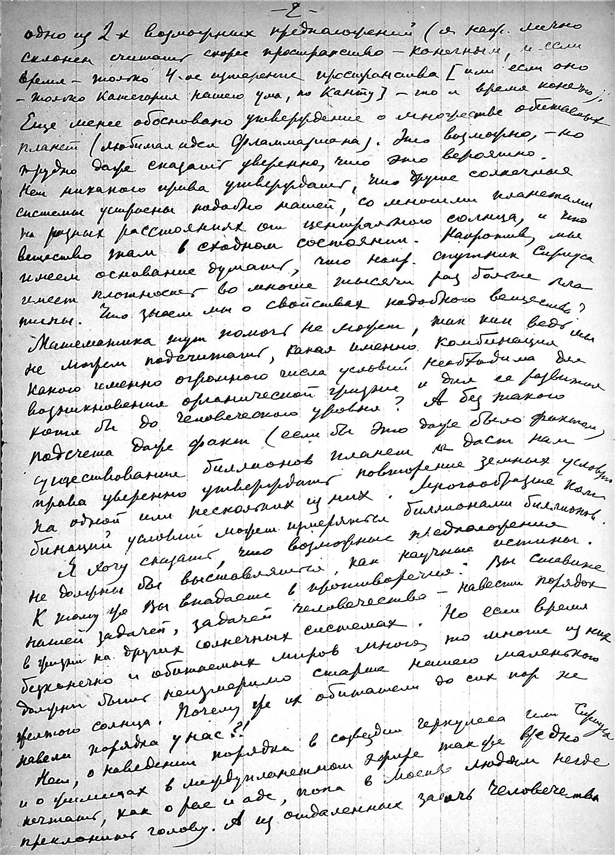 — 2 —
одно из 2-х возможных предположений (я напр. лично
склонен считать скорее пространство — конечным, и если
время — только 4-ое измерение пространства [или если оно
— только категория нашего ума, по Канту] — то и время конечно).
Еще менее обосновано утверждение о множестве обитаемых
планет (любимая идея Фламмариона). Это возможно, — но
трудно даже сказать уверенно, что это вероятно.
Нет никакого права утверждать, что другие солнечные
системы устроены подобно нашей, со многими планетами
на разных расстояниях от центрального солнца, и что
вещество там в сходном состоянии. Напротив, мы
имеем основание думать, что напр. спутник Сириуса
имеет плотность во много тысяч раз больше пла
тины. Что знаем мы о свойствах подобного вещества?
Математика тут помочь не может, так как ведь мы
не можем подсчитать, какая именно комбинация
какого именно огромного числа условий необходима для
возникновения органической жизни и для ее развития
хотя бы до человеческого уровня? А без такого
подсчета даже факт (если бы это даже было фактом)
существования биллионов планет не даст нам
права уверенно утверждать повторение земных условий
на одной или нескольких из них. Многообразие ком
бинаций условий может измеряться биллионами биллионов.
Я хочу сказать, что возможные предположения
не должны бы выставляться, как научные истины.
К тому же Вы впадаете в противоречия. Вы ставите
нашей задачей, задачей человечества — навести порядок
в жизни на других солнечных системах. Но если время
бесконечно и обитаемых миров много, то многие из них
должны быть неизмеримо старше нашего маленького
желтого солнца. Почему же их обитатели до сих пор не
навели порядка у нас?!
Нет, о наведении порядка в созвездии Геркулеса или Сириуса
и о жилищах в междупланетном эфире также вредно
мечтать, как о рае и аде, пока в Москве людям негде
преклонить голову. А из отдаленных задач человечества